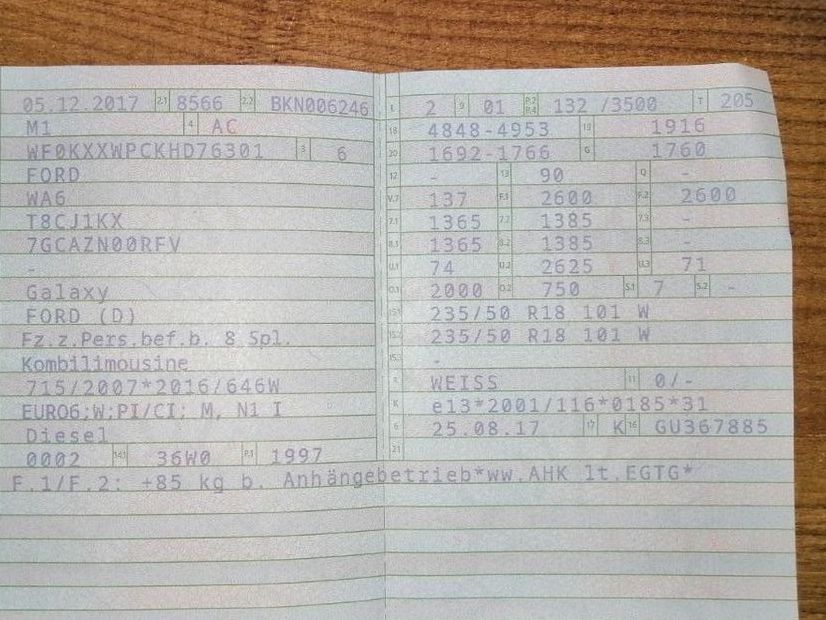 05.12.2017 2.1 8566 2.2 BKN006246
M1 4 AC
WF0KXXWPCKHD76301 3 6
FORD
WA6
T8CJ1KX
7GCAZN00RFV
-
Galaxy
FORD (D)
Fz.z.Pers.bef.b. 8 Spl.
Kombilimousine
715/2007*2016/646W
EURO6;W;PI/CI; M, N1 I
Diesel
0002 14.1 36W0 P.1 1997
L 2 9 01 P.2 P.4 132 /3500 T 205
18 4848-4953 19 1916
20 1692-1766 G 1760
12 - 13 90 Q -
V.7 137 F.1 2600 F.2 2600
7.1 1365 7.2 1385 7.3 -
8.1 1365 8.2 1385 8.3 -
U.1 74 U.2 2625 U.3 71
O.1 2000 O.2 750 S.1 7 S.2 -
15.1 235/50 R18 101 W
15.2 235/50 R18 101 W
15.3 -
R WEISS 11 0/-
K e13*2001/116*0185*31
6 25.08.17 17 K 16 GU367885
21
F.1/F.2: +85 kg b. Anhängebetrieb*ww.AHK lt.EGTG*